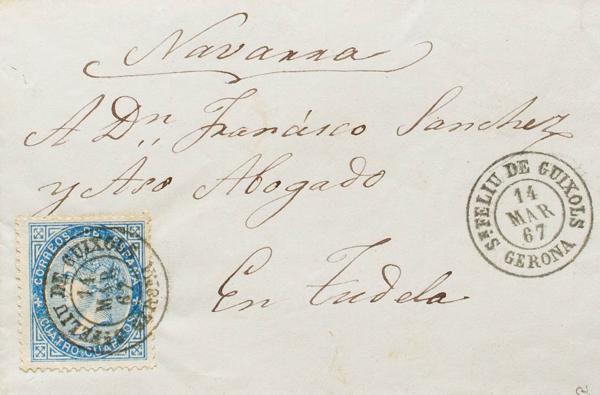 Navarra
A Dn Francísco Sanchez
y Aso Abogado
En Tudela
S. FELIU DE GUIXOLS
14
MAR
67
GERONA
CORREOS DE ESPAÑA
CUATRO CUARTOS
S. FELIU DE GUIXOLS
14
MAR
67